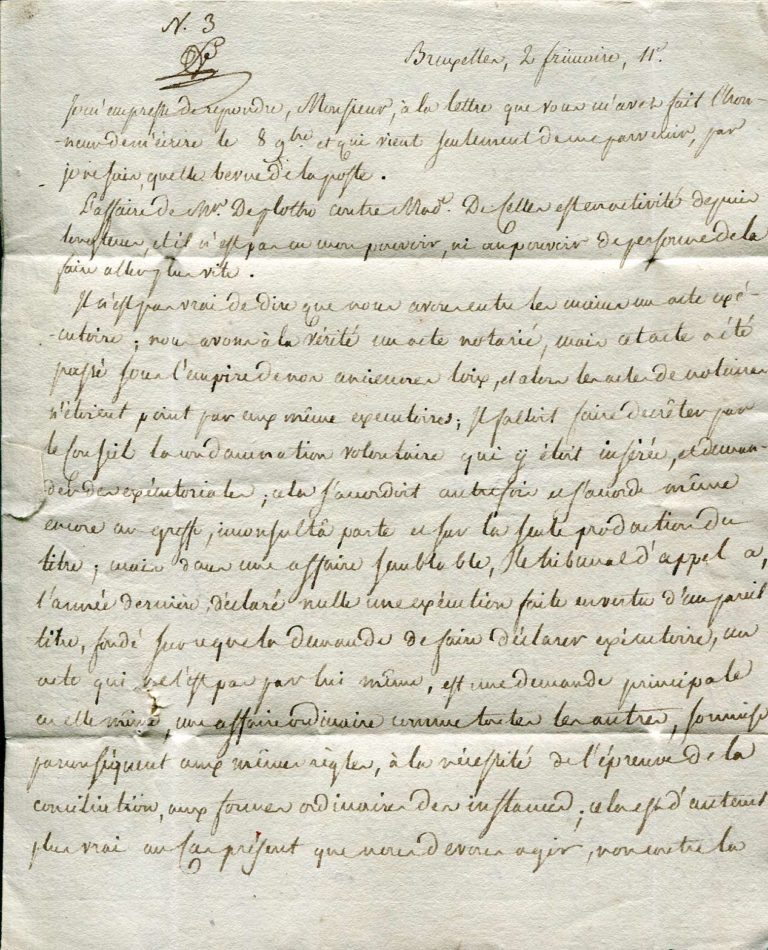 N. 3
Bruxelles, 2 frimaire, 11e.
Je m'empresse de repondre, Monsieur, à la lettre que vous m'avez fait l'hon-
neur de m'écrire le 8 9bre et qui vient seulement de me parvenir, par
je ne sais, quelle bevue de la poste.
L'affaire de Mr. De plotho contre Made. De Celles est en activité depuis
longtems, et il n'est pas en mon pouvoir, ni au pouvoir de personne de la
faire aller plus vite.
Il n'est pas vrai de dire que nous avons entre les mains un acte exé-
-cutoire; nous avons à la vérité un acte notarié, mais cet acte a été
passé sous l'empire de nos anciennes loix, et alors les actes de notaires
n'étoient point par eux même executoires; Il falloit faire décréter par
le Conseil la condamnation volontaire qui y étoit insérée, et deman-
der des exécutoriales; cela s'accordoit autrefois et s'acorde même
encore au greffe, inconsultâ parte et sur la seule production du
titre; mais dans une affaire semblable, le tribunal d'appel a,
l'année derniere, déclaré nulle une exécution faite en vertu d'un pareil
titre, fondé sur ce que la demande de faire déclarer exécutoire, un
acte qui ne l'est pas par lui même, est une demande principale
en elle même, une affaire ordinaire comme toutes les autres, soumise
par conséquent aux mêmes règles, à la nécessité de l'épreuve de la
conciliation, aux formes ordinaires des instances; cela est d'autant
plus vrai au cas présent que nous devons agir, non contre la